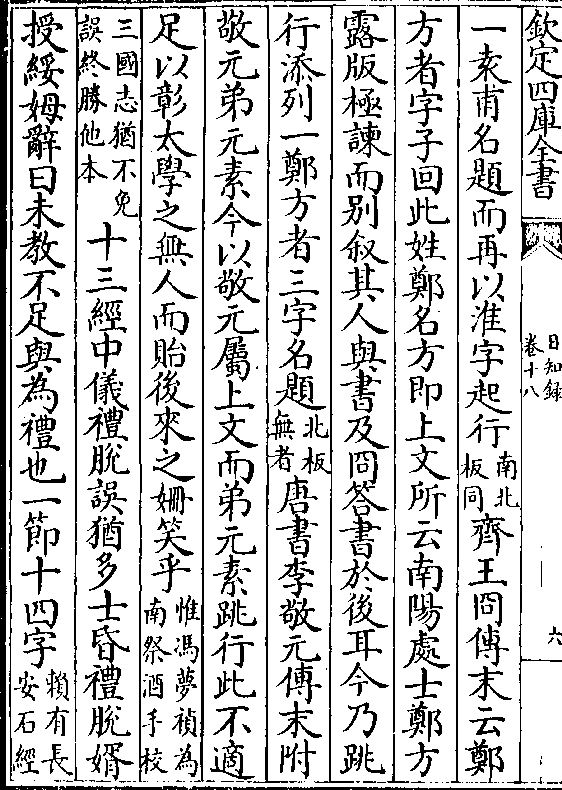 欽定四庫全書
日知錄
卷十八
六
一桒甫名題而再以淮字起行南北板同齊王冏傳末云鄭
方者字子回此姓鄭名方即上文所云南陽處士鄭方
露版極諫而别叙其人與書及冏答書於後耳今乃跳
行添列一鄭方者三字名題北板無者唐書李敬元傳末附
敬元弟元素今以敬元屬上文而弟元素跳行此不適
足以彰太學之無人而貽後來之姍笑乎惟馮夢禎為南祭酒手校
三國志猶不免誤終勝他本十三經中儀禮脫誤猶多士昏禮脫婿
授綏姆辭曰未教不足與為禮也一節十四字賴有長安石經